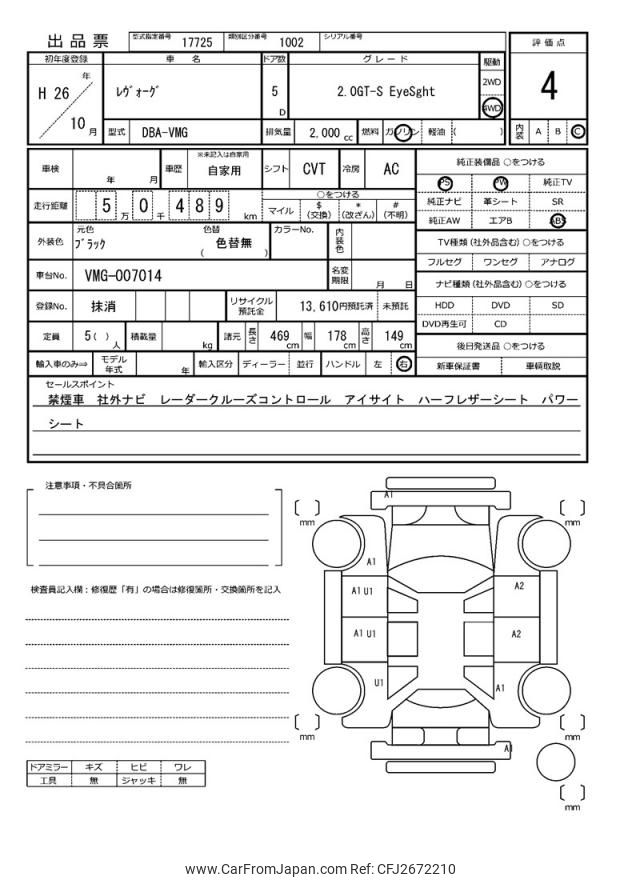 出品票 型式指定番号 17725 類別区分番号 1002 シリアル番号
初年度登録 車名 ドア数 グレード 駆動 評価点
H 26 年 10 月 ﾚｳﾞｫｰｸﾞ 5 D 2.0GT-S EyeSght 2WD 4WD 4
型式 DBA-VMG 排気量 2,000 cc 燃料 ガソリン 軽油 ( ) 内装 A B C
車検 年 月 車歴 ※未記入は自家用 自家用 シフト CVT 冷房 AC 純正装備品 ○をつける
PS PW 純正TV
走行距離 5 万 0 千 4 8 9 km ○をつける
マイル $ (交換) * (改ざん) # (不明)
純正ナビ 革シート SR
純正AW エアB ABS
外装色 元色 ﾌﾞﾗｯｸ 色替 色替無 ( ) カラーNo. 内装色
TV種類 (社外品含む) ○をつける
フルセグ ワンセグ アナログ
車台No. VMG-007014 名変期限 月 日
ナビ種類 (社外品含む) ○をつける
登録No. 抹消 リサイクル預託金 13,610円預託済 未預託
HDD DVD SD
DVD再生可 CD
定員 5( ) 人 積載量 kg 諸元 長さ 469 cm 幅 178 cm 高さ 149 cm
後日発送品 ○をつける
輸入車のみ⇒ モデル年式 年 輸入区分 ディーラー 並行 ハンドル 左 右
新車保証書 車輌取説
セールスポイント
禁煙車 社外ナビ レーダークルーズコントロール アイサイト ハーフレザーシート パワー
シート
注意事項・不具合箇所
検査員記入欄：修復歴「有」の場合は修復箇所・交換箇所を記入
A1
mm mm
A1
A1 U1 A2
A1 U1 A2
U1 A1
mm mm
A1
mm
ドアミラー キズ ヒビ ワレ
工具 無 ジャッキ 無
www.CarFromJapan.com Ref: CFJ2672210